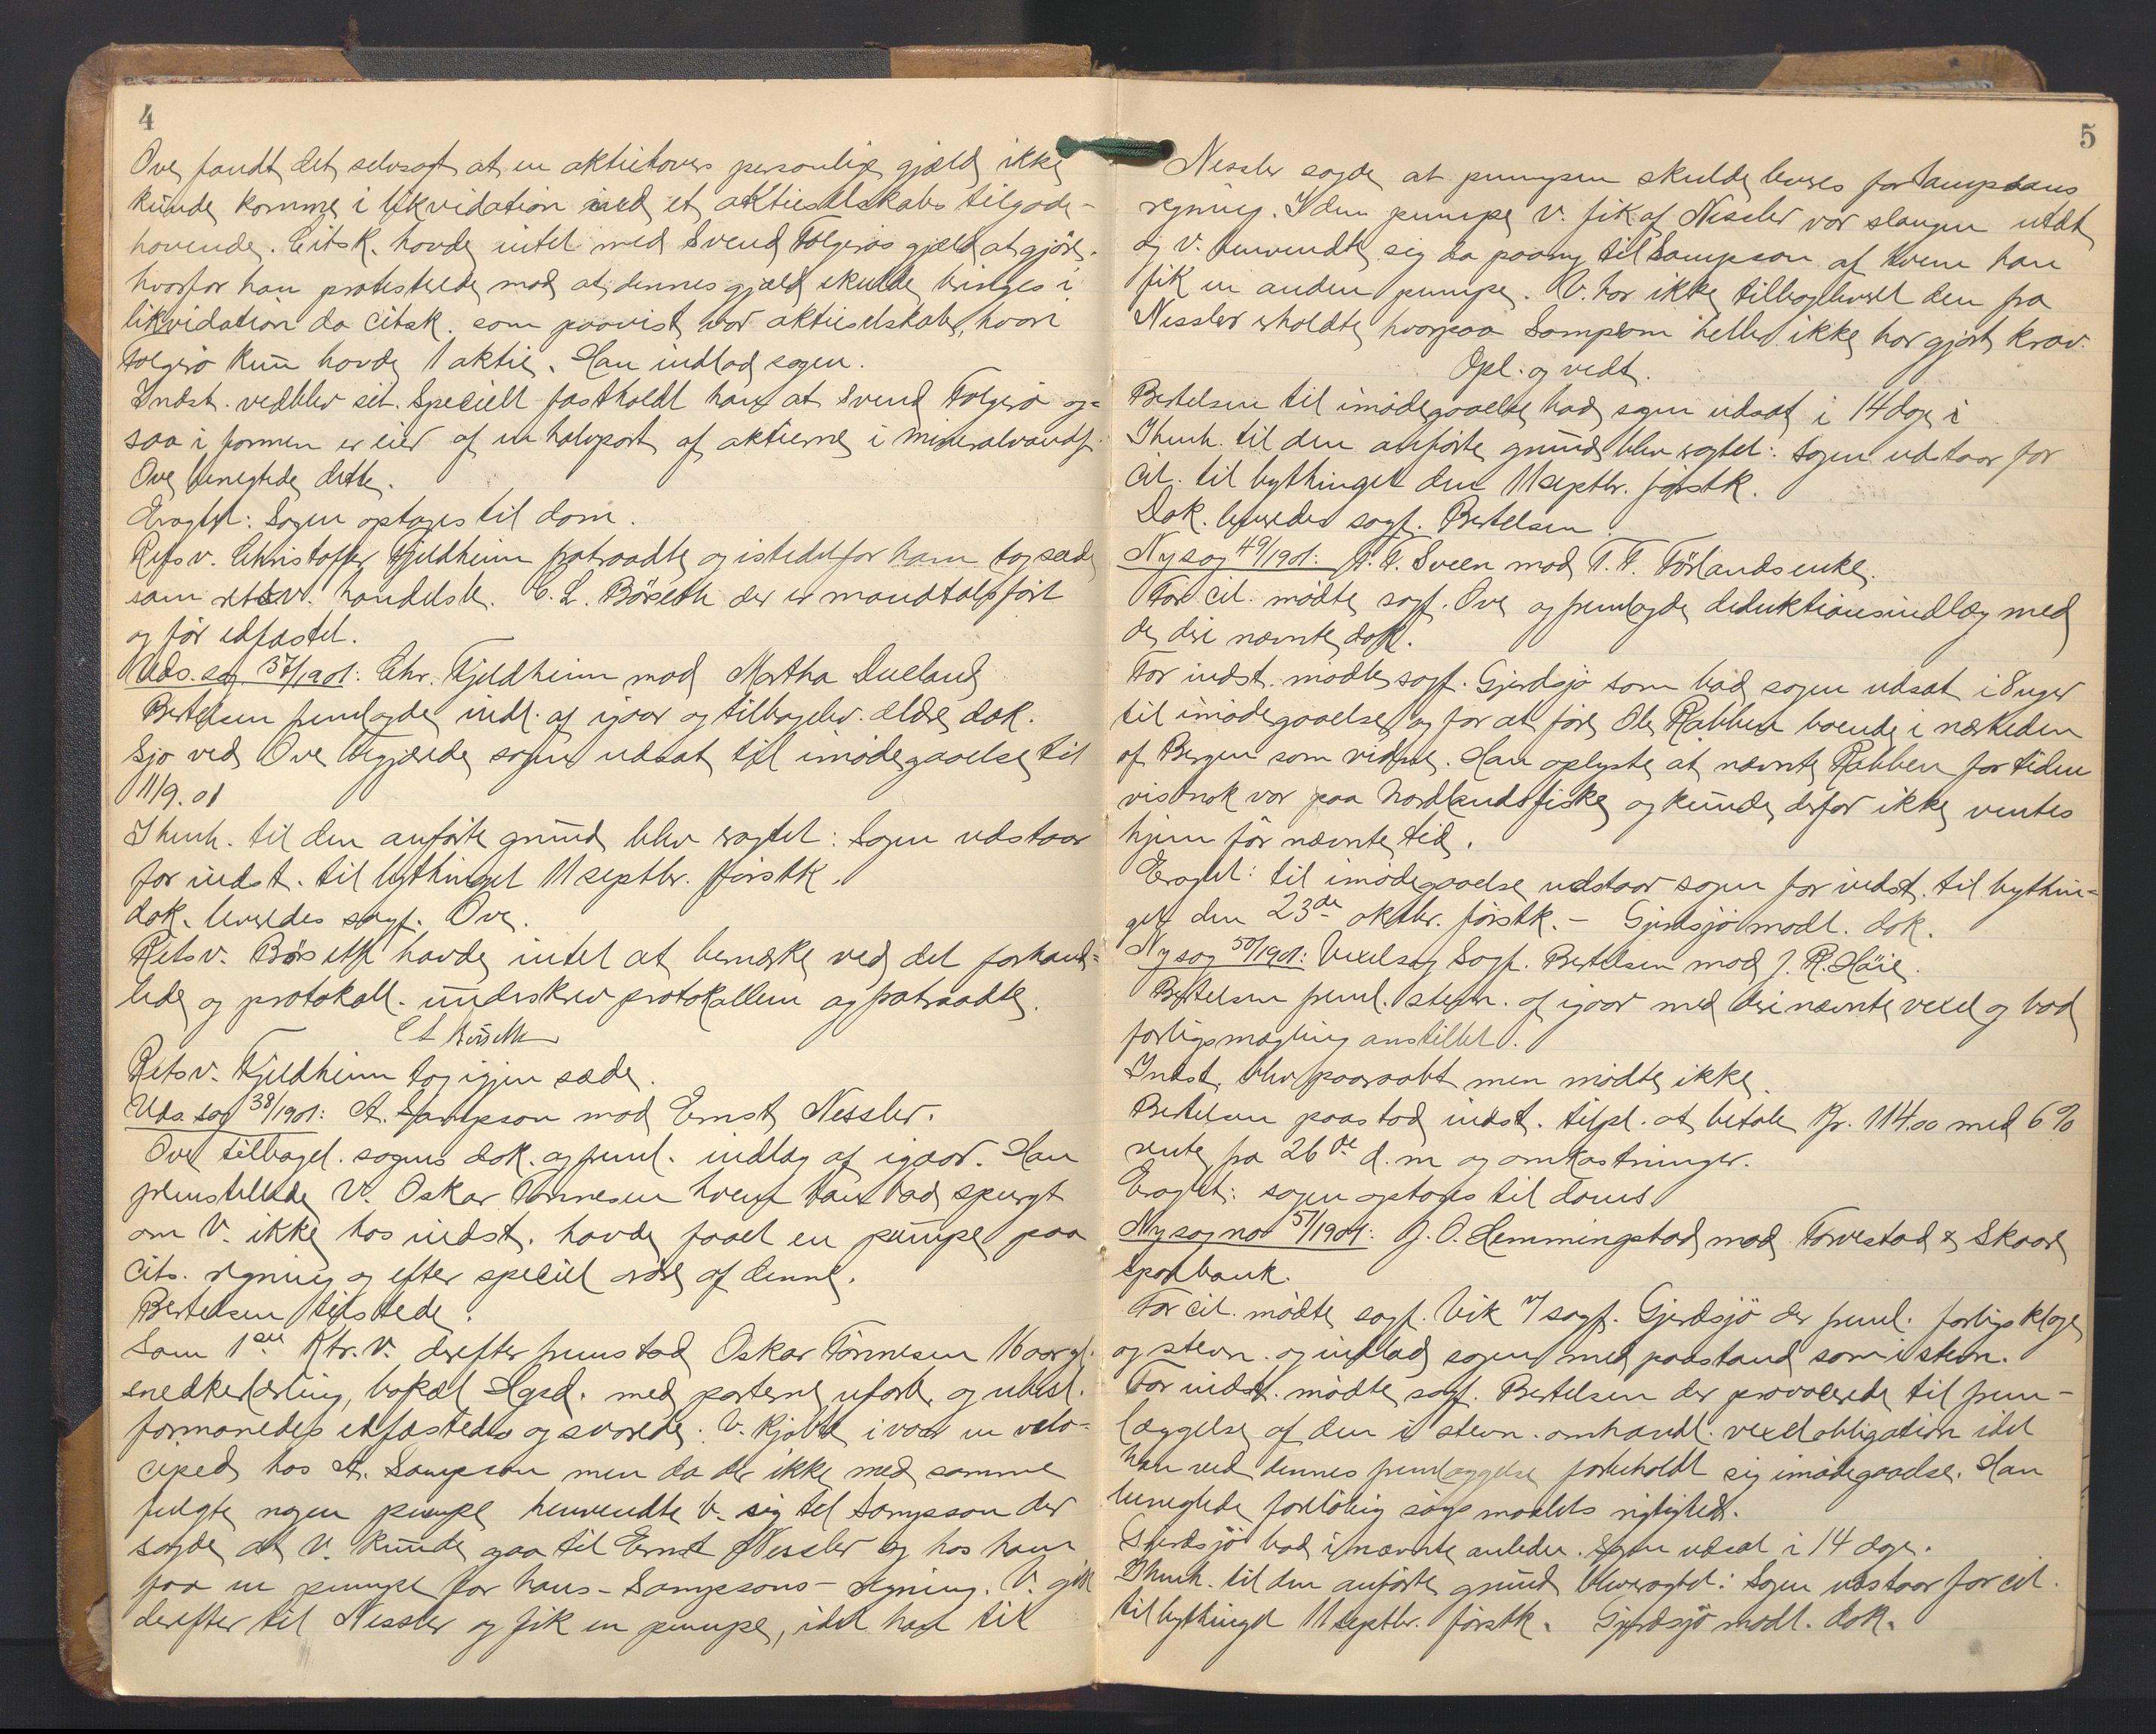 4
Ove fandt det selvsagt at en aktietovers personlige gjæld ikke
kunde komme i likvidation med et aktieselskabs tilgode-
havende. Citsk. havde intet med Svend Folgerøs gjæld at gjøre,
hvorfor han protesterede mod at dennes gjæld skulde bringes i
likvidation da citsk. som paavist var aktieselskabet, hvori
Folgerø kun havde 1 aktie. Han indlod sagen.
Indst. vedblev sit. Specielt fastholdt han at Svend Folgerø og-
saa i formen er eier af en halvpart af aktierne i mineralvandf.
Ove benegtede dette.
Eragtet: Sagen optages til dom.
Retsv. Christoffer Fjeldheim fratraadte og istedetfor ham tog sæde
som retsv. handelsb. C. L. Börseth der er mandtalsfört
og för edfæstet.
Uds. sag 37/1901: Chr. Fjeldheim mod Martha Dueland
Bertelsen fremlagde indl. af igaar og tilbagelev. ældre dok.
Sjo ved Ove begjærede sagen udsat til imødegaaelse til
11/9. 01
I henh. til den anførte grund blev eragtet: Sagen udstaar
for indst. til bythinget 11 septbr. førstk.
dok. leveredes sagf. Ove.
Retsv. Börseth havde intet at bemerke ved det forhand-
lede og protokoll. underskrev protokollen og fratraadte.
C L Börseth
Retsv. Fjeldheim tog igjen sæde.
Uds. sag 38/1901: A. Sampson mod Ernst Nessler.
Ove tilbagel. sagens dok. og freml. indlæg af igaar. Han
fremstillede V. Oskar Tønnesen hvem han bad spurgt
om V. ikke hos indst. havde faaet en pumpe paa
Cits. regning og efter speciel ordre af denne.
Bertelsen tilstede.
Som 1ste Ktr. V. derefter fremstod Oskar Tönnesen 16 aar gl.
snedkerlærling, bopæl Hgsd. med parterne uforb. og ubesl.
formanedes edfæstedes og svarede: V. kjøbte ivaar en velo-
ciped hos A. Sampson men da der ikke med samme
fulgte nogen pumpe henvendte V. sig til Sampson der
sagde at V. kunde gaa til Ernst Nessler og hos ham
faa en pumpe for hans - Sampsons - regning. V. gik
derefter til Nessler og fik en pumpe, idet han til
5
Nessler sagde at pumpen skulde leveres for Sampsons
regning. I den pumpe V. fik af Nessler var slangen utæt
og V. henvendte sig da paany til Sampson af hvem han
fik en anden pumpe. V. har ikke tilbageleveret den fra
Nessler erholdte, hvorpaa Sampson heller ikke har gjort krav.
Opl. og vedt.
Bertelsen til imødegaaelse bad sagen udsat i 14 dage i
I henh. til den anførte grund blev eragtet: Sagen udstaar for
Cit. til bythinget den 11 septbr. førstk.
Dok. leveredes sagf. Bertelsen.
Ny sag 49/1901: A. T. Sveen mod T. T. Förlands enke.
For cit. mødte sagf. Ove og fremlagde deduktionsindlæg med
de deri nævnte dok.
For indst. mødte sagf. Gjerdsjø som bad sagen udsat i 8 uger
til imødegaaelse og for at føre Ole Rabben boende i nærheden
af Bergen som vidne. Han oplyste at nævnte Rabben for tiden
vistnok var paa Nordlandsfiske og kunde derfor ikke ventes
hjem før nævnte tid.
Eragtet: til imødegaaelse udstaar sagen for indst. til bythin-
get den 23de oktbr. førstk. - Gjerdsjø modt. dok.
Ny sag 50/1901: Vexelsag Sagf. Bertelsen mod J. R. Höie.
Bertelsen freml. stevn. af igaar med deri nævnte vexel og bad
forligsmægling anstillet.
Indst. blev paaraabt men mødte ikke.
Bertelsen paastod indst. tilpl. at betale Kr. 114.00 med 6%
rente fra 26de d. m og omkostninger.
Eragtet: sagen optages til doms
Ny sag no 51/1901: J. O. Hemmingstad mod Torvestad & Skaare
sparebank.
For cit. mødte sagf. Vik f/ sagf. Gjerdsjö der freml. forligsklage
og stevn. og indlod sagen med paastand som i stevn.
For indst. mødte sagf. Bertelsen der provocerede til frem-
læggelse af den i stevn. omhandl. vexelobligation idet
han ved dennes fremlæggelse forbeholdt sig imødegaaelse. Han
benegtede foreløbig søgsmaalets rigtighed.
Gjerdsjö bad i nævnte anledn. sagen udsat i 14 dage.
I henh. til den anførte grund blev eragtet: Sagen udstaar for cit.
til bythinget 11 septbr. førstk. Gjerdsjö modt. dok.